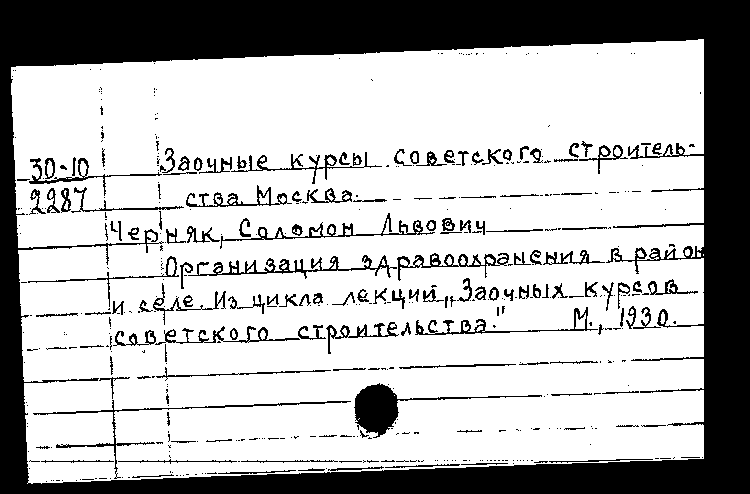 30-10 Заочные курсы советского строитель-
2287 ства. Москва.
Черняк, Соломон Львович
Организация здравоохранения в район
и селе. Из цикла лекций „Заочных курсов
советского строительства." М., 1930.